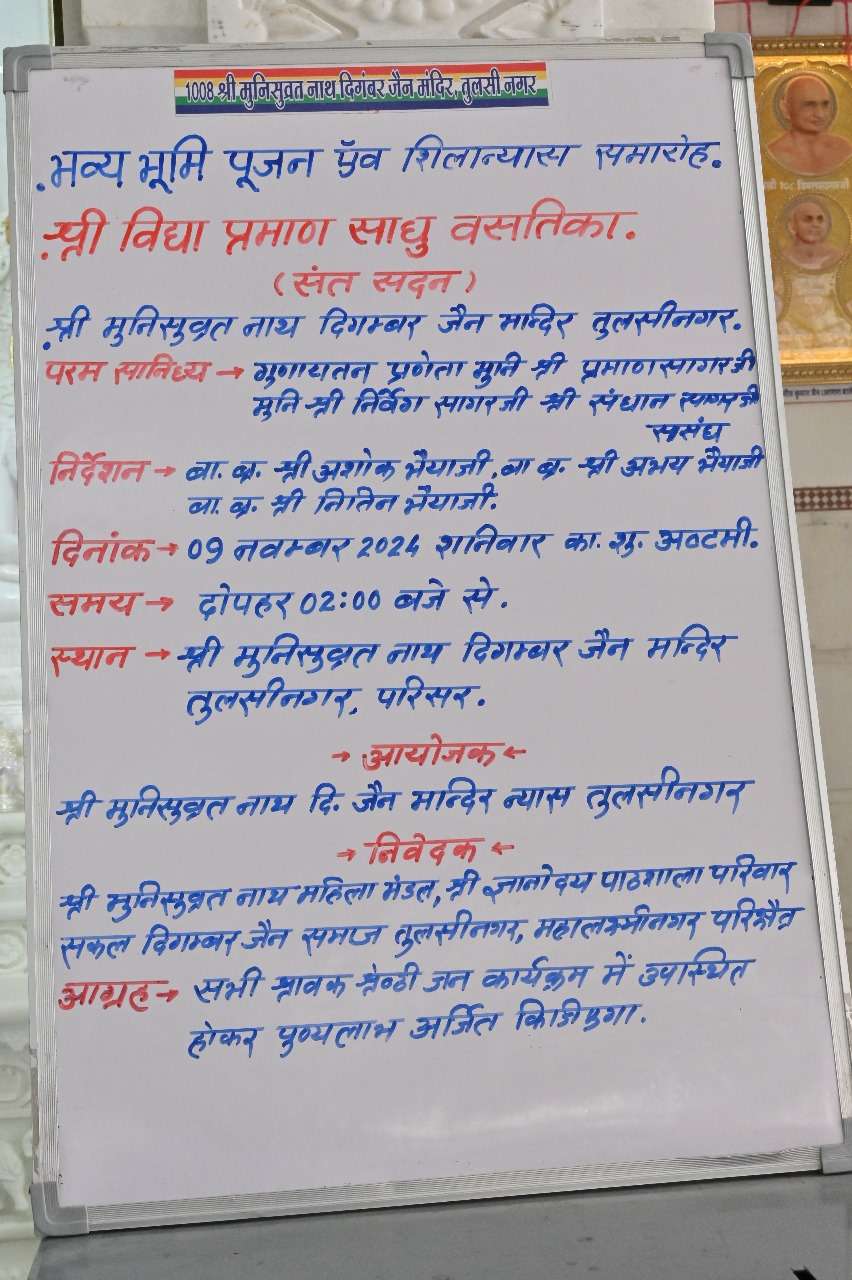 1008 श्री मुनिसुव्रत नाथ दिगंबर जैन मंदिर, तुलसी नगर
भव्य भूमि पूजन एॅव शिलान्यास समारोह.
श्री विद्या प्रमाण साधु वसतिका.
(संत सदन)
श्री मुनिसुव्रत नाथ दिगम्बर जैन मन्दिर तुलसीनगर.
परम सानिध्य → गुणायतन प्रणेता मुनि श्री प्रमाणसागरजी
मुनि श्री निर्वेग सागरजी श्री संधान सागरजी
ससंघ
निर्देशन → बा. ब्र. श्री अशोक भैयाजी, बा ब्र. श्री अभय भैयाजी
बा. ब्र. श्री नितिन भैयाजी.
दिनांक → 09 नवम्बर 2024 शनिवार का. शु. अष्टमी.
समय → दोपहर 02:00 बजे से.
स्थान → श्री मुनिसुव्रत नाथ दिगम्बर जैन मन्दिर
तुलसीनगर, परिसर.
→ आयोजक ←
श्री मुनिसुव्रत नाथ दि. जैन मान्दिर न्यास तुलसीनगर
→ निवेदक ←
श्री मुनिसुव्रत नाथ महिला मंडल, श्री ज्ञानोदय पाठशाला परिवार
सकल दिगम्बर जैन समाज तुलसीनगर, महालक्ष्मीनगर परिक्षैत्र
आग्रह → सभी श्रावक श्रेष्ठी जन कार्यक्रम में उपस्थित
होकर पुण्यलाभ अर्जित किजिएगा.